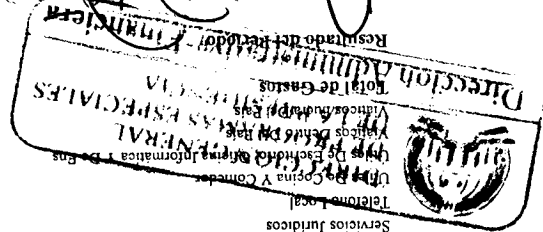 Servicios Juridicos
Telefono Local
Utiles De Cocina Y Comedor
Utiles De Escritorio, Oficina Informatica Y De Ens
Viaticos Dentro Del Pais
Viaticos Fuera Del Pais
Total de Gastos
Resultado del Periodo
GENERAL
ESPECIALES
Dirección Administrativa Financiera